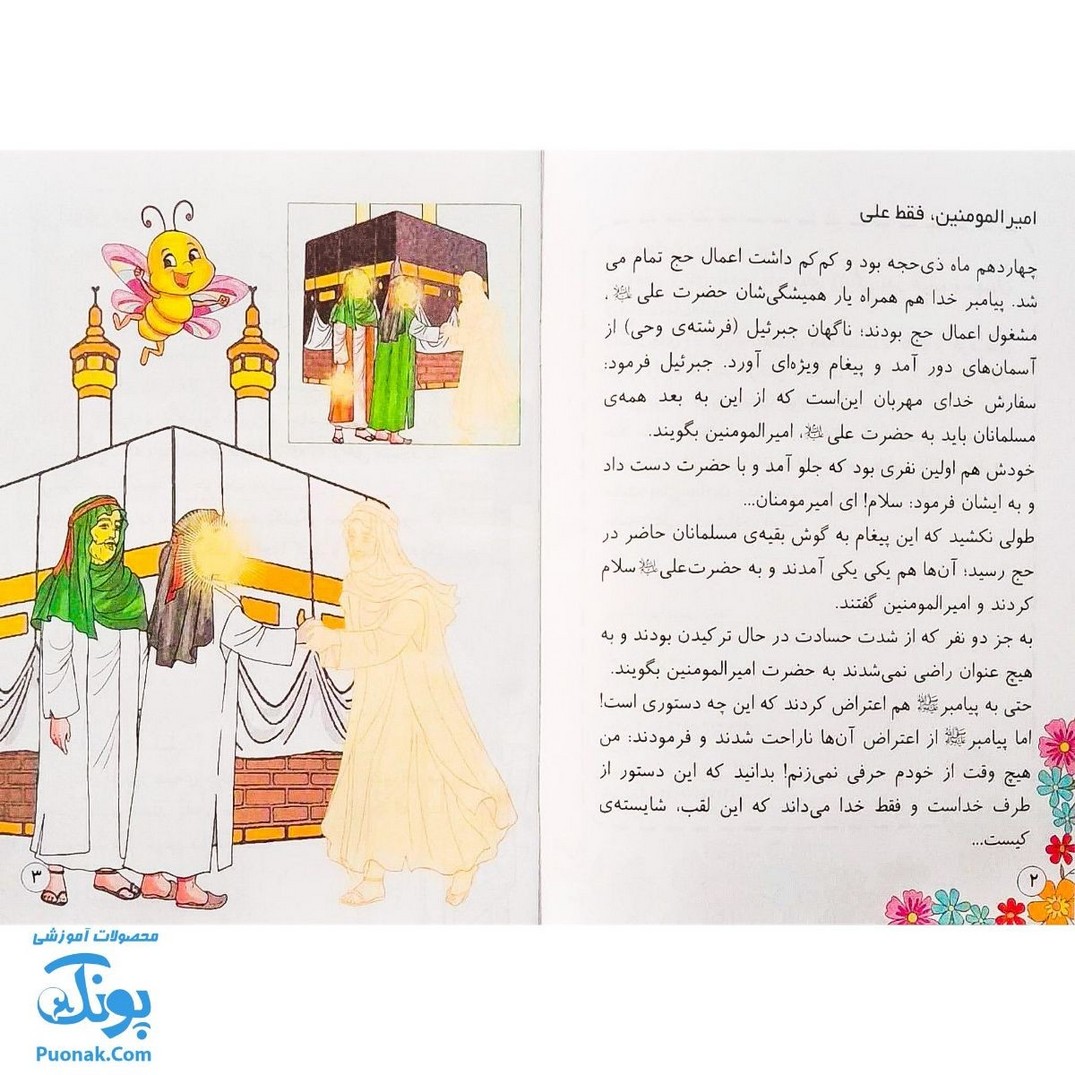 امیرالمومنین، فقط علی
چهاردهم ماه ذی‌حجه بود و کم‌کم داشت اعمال حج تمام می
شد. پیامبر خدا هم همراه یار همیشگی‌شان حضرت علی علیه‌السلام،
مشغول اعمال حج بودند؛ ناگهان جبرئیل (فرشته‌ی وحی) از
آسمان‌های دور آمد و پیغام ویژه‌ای آورد. جبرئیل فرمود:
سفارش خدای مهربان این‌است که از این به بعد همه‌ی
مسلمانان باید به حضرت علی علیه‌السلام، امیرالمومنین بگویند.
خودش هم اولین نفری بود که جلو آمد و با حضرت دست داد
و به ایشان فرمود: سلام! ای امیرمومنان...
طولی نکشید که این پیغام به گوش بقیه‌ی مسلمانان حاضر در
حج رسید؛ آن‌ها هم یکی یکی آمدند و به حضرت‌علی علیه‌السلام سلام
کردند و امیرالمومنین گفتند.
به جز دو نفر که از شدت حسادت در حال ترکیدن بودند و به
هیچ عنوان راضی نمی‌شدند به حضرت امیرالمومنین بگویند.
حتی به پیامبر ﷺ هم اعتراض کردند که این چه دستوری است!
اما پیامبر ﷺ از اعتراض آن‌ها ناراحت شدند و فرمودند: من
هیچ وقت از خودم حرفی نمی‌زنم! بدانید که این دستور از
طرف خداست و فقط خدا می‌داند که این لقب، شایسته‌ی
کیست...
۲
۳
محصولات آموزشی
پونک
Puonak.Com